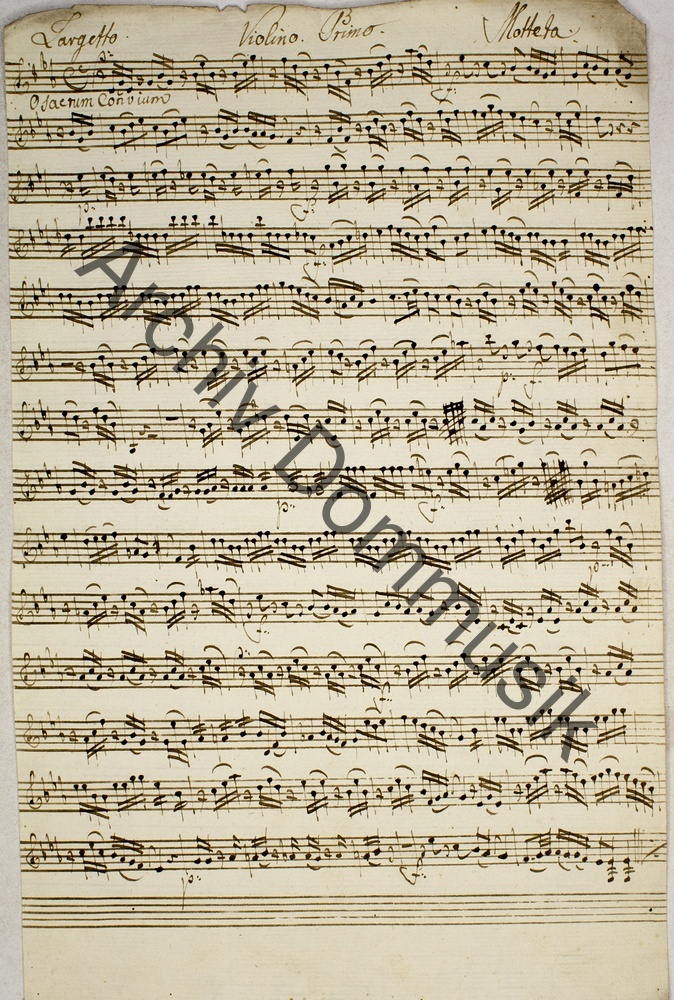 Largetto. Violino. Primo. Motteta.
O sacrum Convivium
f:
p:
f:
f:
p: f:
p: f:
p:
f:
f:
p: f:
Archiv Dommusik